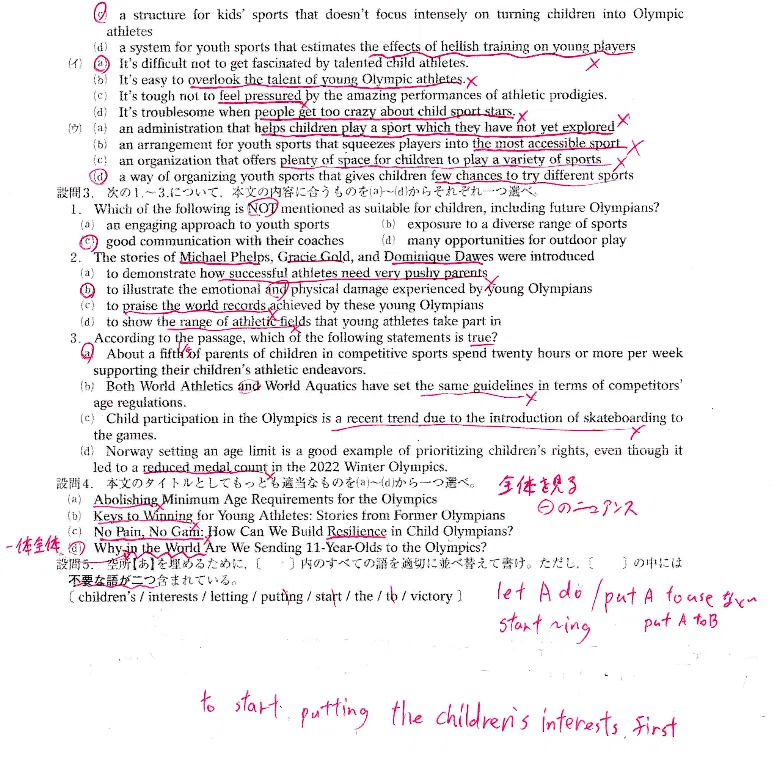 (c) a structure for kids' sports that doesn't focus intensely on turning children into Olympic
athletes
(d) a system for youth sports that estimates the effects of hellish training on young players
(イ) (a) It's difficult not to get fascinated by talented child athletes. ×
(b) It's easy to overlook the talent of young Olympic athletes. ×
(c) It's tough not to feel pressured by the amazing performances of athletic prodigies. ×
(d) It's troublesome when people get too crazy about child sport stars. ×
(ウ) (a) an administration that helps children play a sport which they have not yet explored ×
(b) an arrangement for youth sports that squeezes players into the most accessible sport ×
(c) an organization that offers plenty of space for children to play a variety of sports ×
(d) a way of organizing youth sports that gives children few chances to try different sports
設問3. 次の1.~3.について、本文の内容に合うものを(a)~(d)からそれぞれ一つ選べ。
1. Which of the following is NOT mentioned as suitable for children, including future Olympians?
(a) an engaging approach to youth sports (b) exposure to a diverse range of sports
(c) good communication with their coaches (d) many opportunities for outdoor play
2. The stories of Michael Phelps, Gracie Gold, and Dominique Dawes were introduced
(a) to demonstrate how successful athletes need very pushy parents ×
(b) to illustrate the emotional and physical damage experienced by young Olympians
(c) to praise the world records achieved by these young Olympians ×
(d) to show the range of athletic fields that young athletes take part in ×
3. According to the passage, which of the following statements is true?
(a) About a fifth 1/5 of parents of children in competitive sports spend twenty hours or more per week
supporting their children's athletic endeavors.
(b) Both World Athletics and World Aquatics have set the same guidelines in terms of competitors'
age regulations. ×
(c) Child participation in the Olympics is a recent trend due to the introduction of skateboarding to
the games. ×
(d) Norway setting an age limit is a good example of prioritizing children's rights, even though it
led to a reduced medal count in the 2022 Winter Olympics. ×
設問4. 本文のタイトルとしてもっとも適当なものを(a)~(d)から一つ選べ。 全体を見る
(a) Abolishing Minimum Age Requirements for the Olympics ㊀のニュアンス
(b) Keys to Winning for Young Athletes: Stories from Former Olympians
(c) No Pain, No Gain: How Can We Build Resilience in Child Olympians?
一体全体 (d) Why in the World Are We Sending 11-Year-Olds to the Olympics?
設問5. 空所【あ】を埋めるために、〔 〕内のすべての語を適切に並べ替えて書け。ただし、〔 〕の中には
不要な語が二つ含まれている。
〔 children's / interests / letting / putting / start / the / to / victory 〕
let A do / put A to use
start ~ing put A to B
to start putting the children's interests first